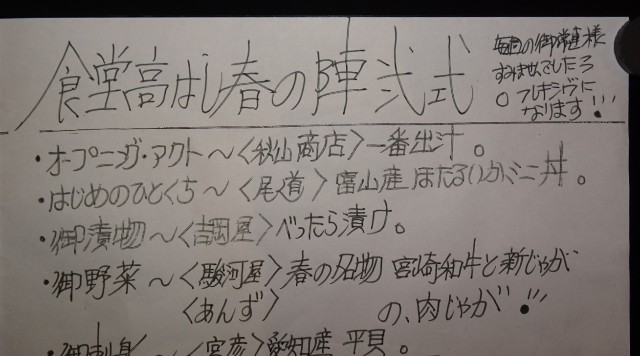 食堂高はし春の陣弐式
毎回の御常連様
すみませんでした
フレキシヴに
なります!!!
・オープニング・アクト〜〈秋山商店〉一番出汁。
・はじめのひとくち〜〈尾道〉富山産ほたるいかミニ丼。
・御漬物〜〈吉岡屋〉べったら漬け。
・御野菜〜〈駿河屋〉春の名物 宮崎和牛と新じゃが
〈あんず〉 の、肉じゃが!!
・御刺身〜〈宮彦〉愛知産 平貝。